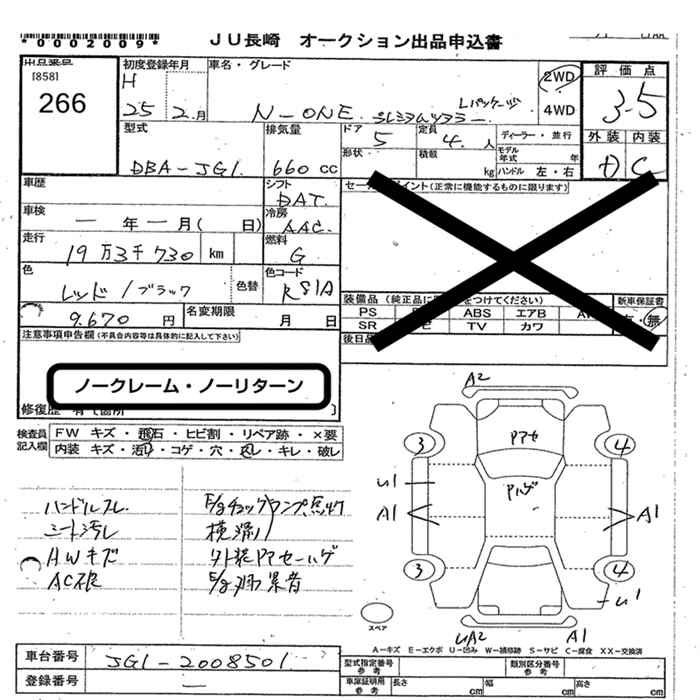 *0002009*
JU長崎 オークション出品申込書
出品番号
[858]
266
初度登録年月
H
25 2月
車名・グレード
N-ONE プレミアムツアラー Lパッケージ
2WD
4WD
評価点
3-5
外装 内装
D C
型式
DBA-JG1.
排気量
660 cc
ドア 5
定員 4. 人
形状
積載 kg
ディーラー・並行
モデル年式 年
ハンドル 左・右
車歴
シフト
DAT.
セールスポイント(正常に機能するものに限ります)
車検
― 年 ― 月( 日)
冷房
AAC.
走行
19万3千730 km
燃料
G
色
レッド/ブラック
色替
色コード
R81A
装備品(純正品に をつけてください)
新車保証書
PS ABS エアB
有・無
SR TV カワ
9.670 円
名変期限 月 日
後日品
注意事項申告欄(不具合内容等は具体的に記入して下さい)
ノークレーム・ノーリターン
修復歴 有(箇所 )
検査員記入欄
FW キズ・飛石・ヒビ割・リペア跡・×要
内装 キズ・汚れ・コゲ・穴・スレ・キレ・破レ
ハンドルスレ
シート汚レ
HWキズ
AC破
E/gチェックランプ点灯
横滑り
外装Pアセ・ハゲ
E/g異音
A2
Pアセ
Pハゲ
3
4
u1
A1
A1
3
4
u1
スペア
uA2
A1
A=キズ E=エクボ U=凹み W=補修跡 S=サビ C=腐食 XX=交換済
車台番号
JG1-2008501
登録番号
―
型式指定番号
参考
類別区分番号
参考
車庫証明用
参考
長さ cm
幅 cm
高さ cm